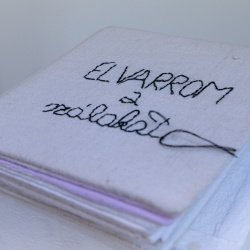 ELVARROM
a
szálakat